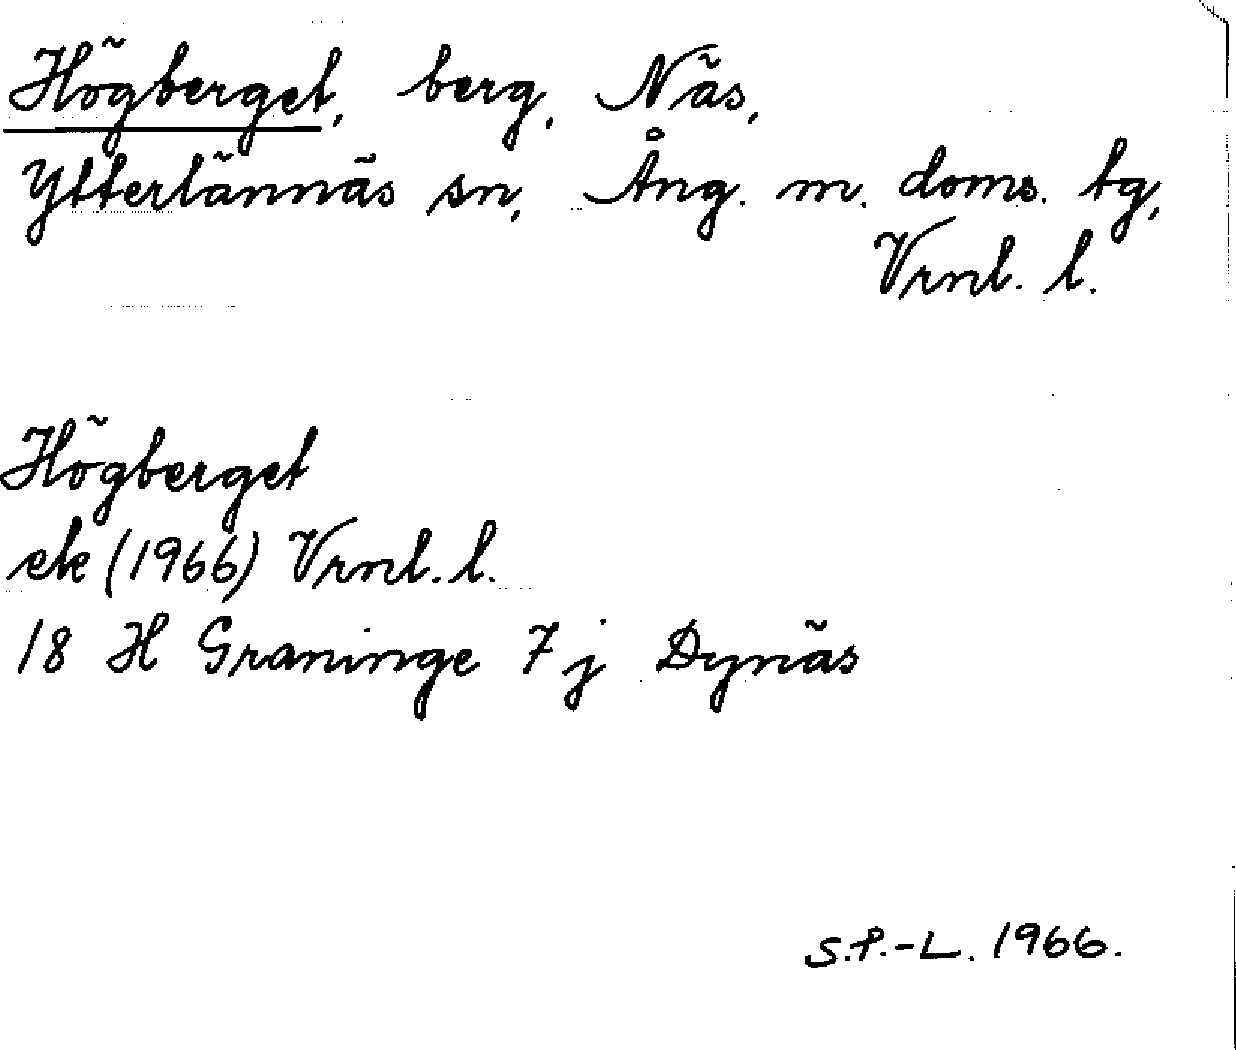 Högberget, berg, Näs,
Ytterlännäs sn, Ång. m. doms. tg,
Vrnl. l.
Högberget
ek (1966) Vrnl. l.
18 H Graninge 7 j Dynäs
S.P.-L. 1966.